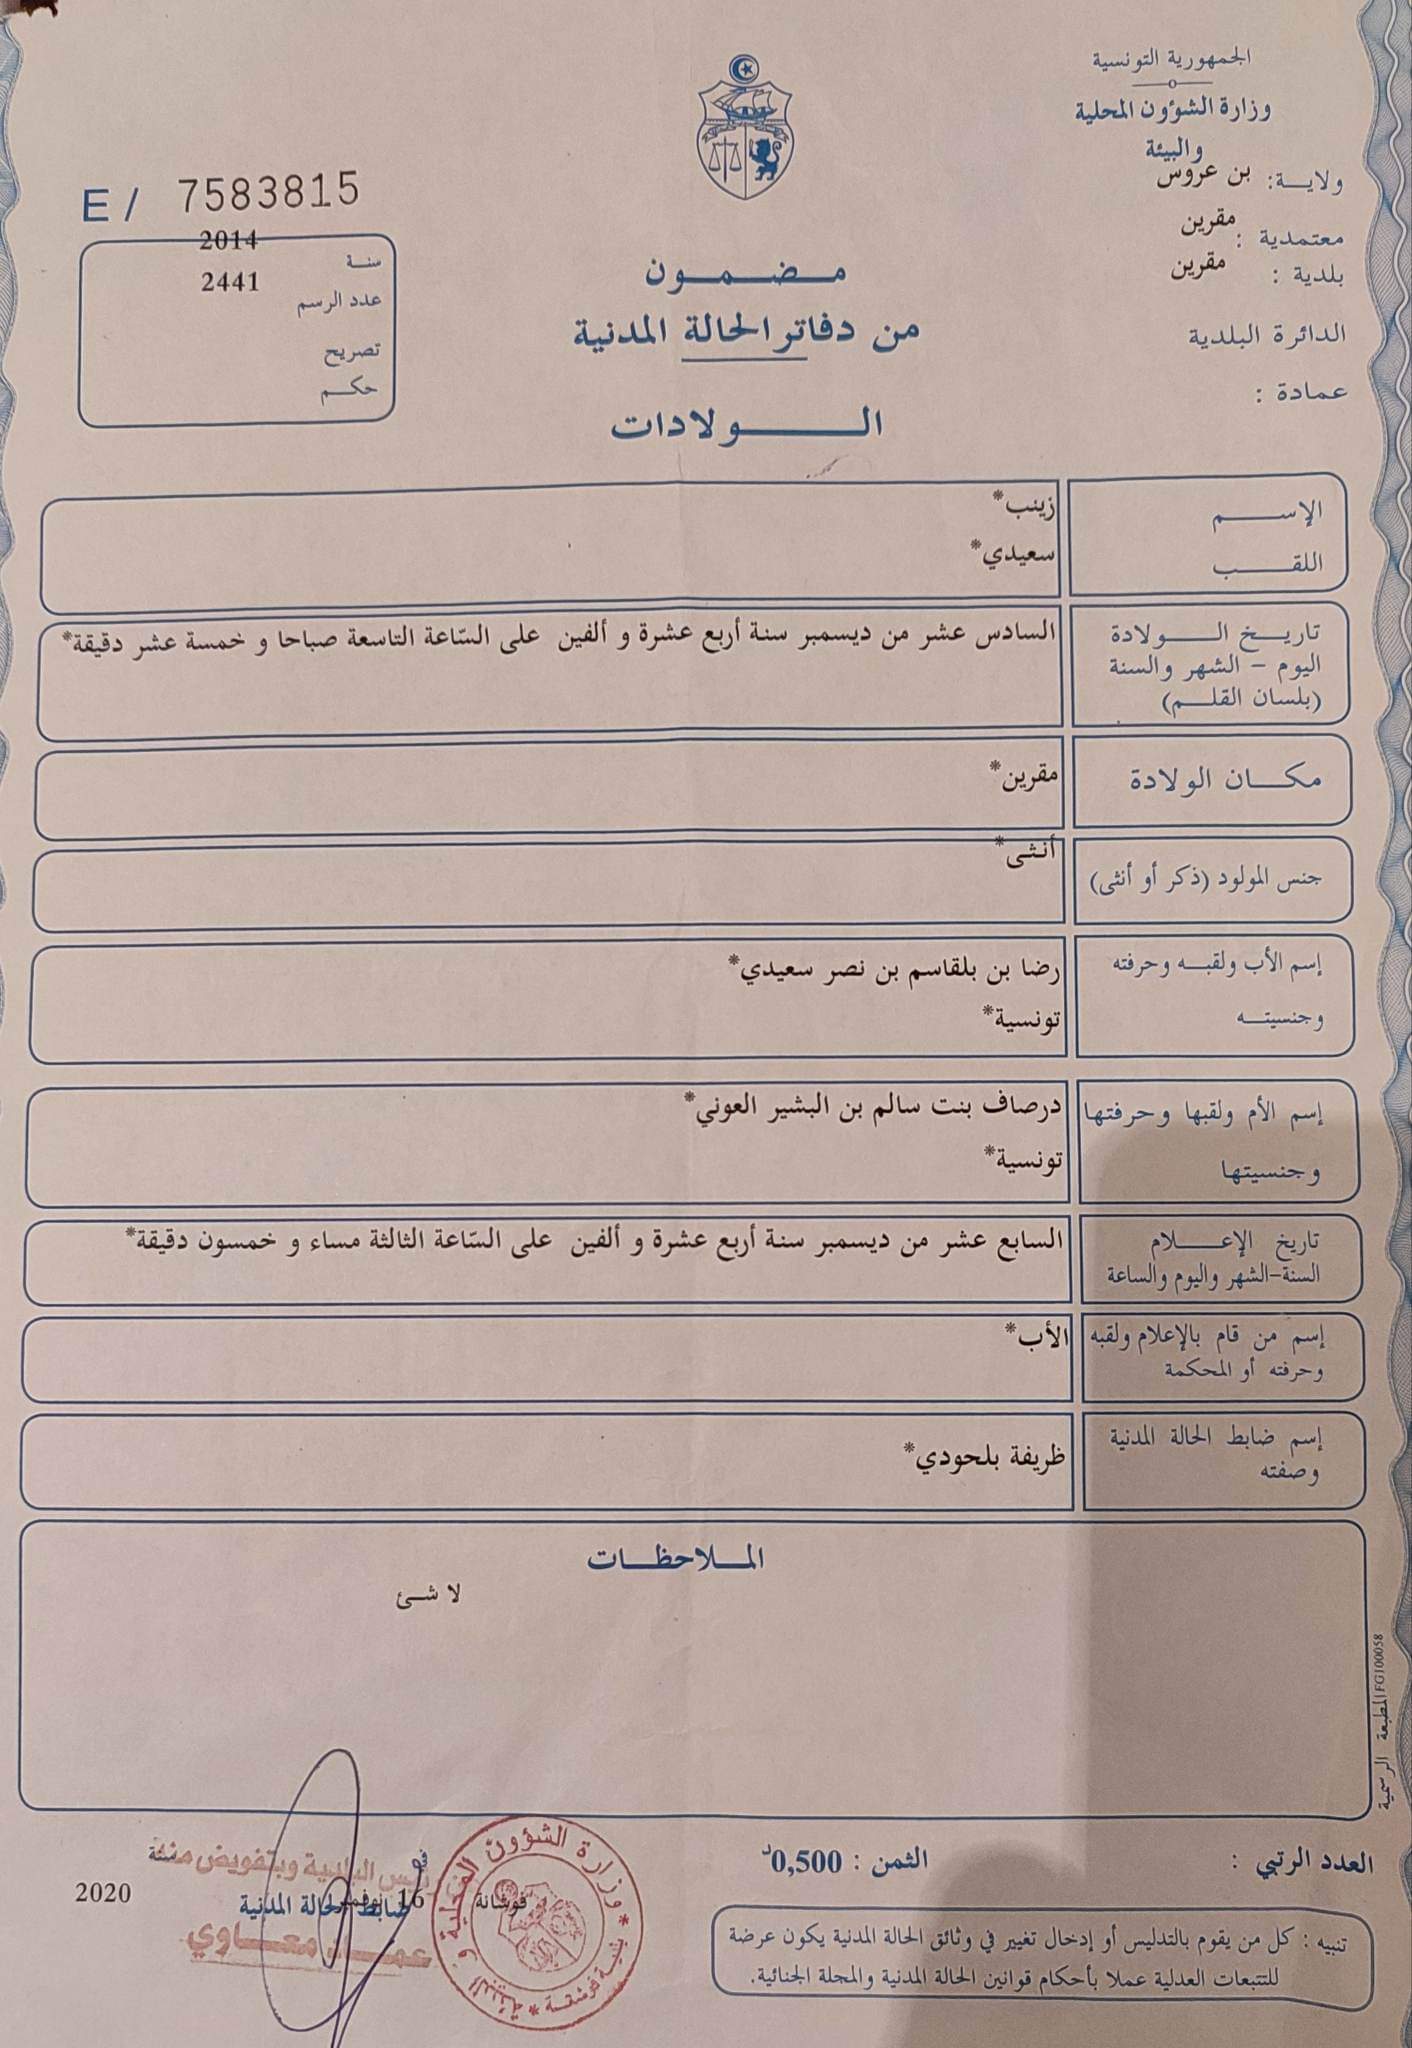 الجمهورية التونسية
وزارة الشؤون المحلية
والبيئة
ولاية: بن عروس
معتمدية : مقرين
بلدية : مقرين
الدائرة البلدية
عمادة :
E / 7583815
سنة 2014
عدد الرسم 2441
تصريح
حكم
مضمون
من دفاتر الحالة المدنية
الولادات
الإسم
زينب*
اللقب
سعيدي*
تاريخ الولادة
اليوم - الشهر والسنة
(بلسان القلم)
السادس عشر من ديسمبر سنة أربع عشرة و ألفين على السّاعة التاسعة صباحا و خمسة عشر دقيقة*
مكان الولادة
مقرين*
جنس المولود (ذكر أو أنثى)
أنثى*
إسم الأب ولقبه وحرفته
وجنسيته
رضا بن بلقاسم بن نصر سعيدي*
تونسية*
إسم الأم ولقبها وحرفتها
وجنسيتها
درصاف بنت سالم بن البشير العوني*
تونسية*
تاريخ الإعلام
السنة-الشهر واليوم والساعة
السابع عشر من ديسمبر سنة أربع عشرة و ألفين على السّاعة الثالثة مساء و خمسون دقيقة*
إسم من قام بالإعلام ولقبه
وحرفته أو المحكمة
الأب*
إسم ضابط الحالة المدنية
وصفته
ظريفة بلحودي*
الملاحظات
لا شئ
المطبعة الرسمية FG100058
العدد الرتبي :
الثمن : 0,500د
تنبيه : كل من يقوم بالتدليس أو إدخال تغيير في وثائق الحالة المدنية يكون عرضة
للتتبعات العدلية عملا بأحكام قوانين الحالة المدنية والمجلة الجنائية.
وزارة الشؤون المحلية و البيئة
فوشانة
16 نوفمبر
سنة
2020
رئيس البلدية وبتفويض منه
ضابط الحالة المدنية
معاوي